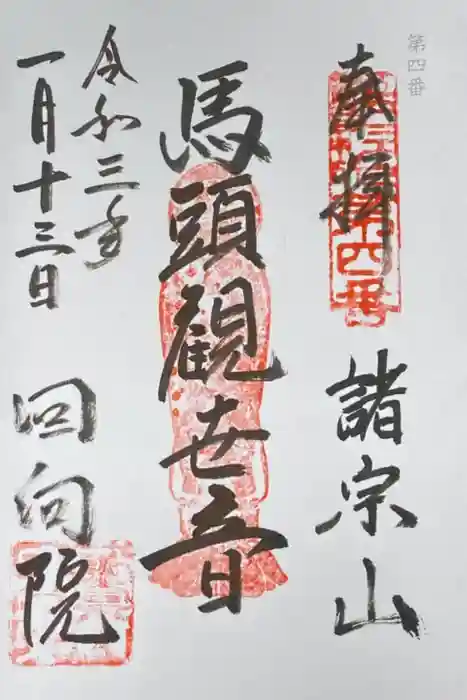 第四番
奉拝
諸宗山
馬頭観世音
令和三年
一月十三日
回向院